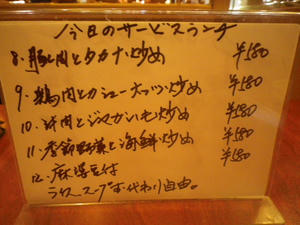 今日のサービスランチ
8. 豚肉とタカナ炒め ¥580
9. 鶏肉とカシューナッツ炒め ¥580
10. 牛肉とジャガイモ炒め ¥580
11. 季節野菜と海鮮炒め ¥580
12. 麻婆豆腐 ¥580
ライス、スープおかわり自由。